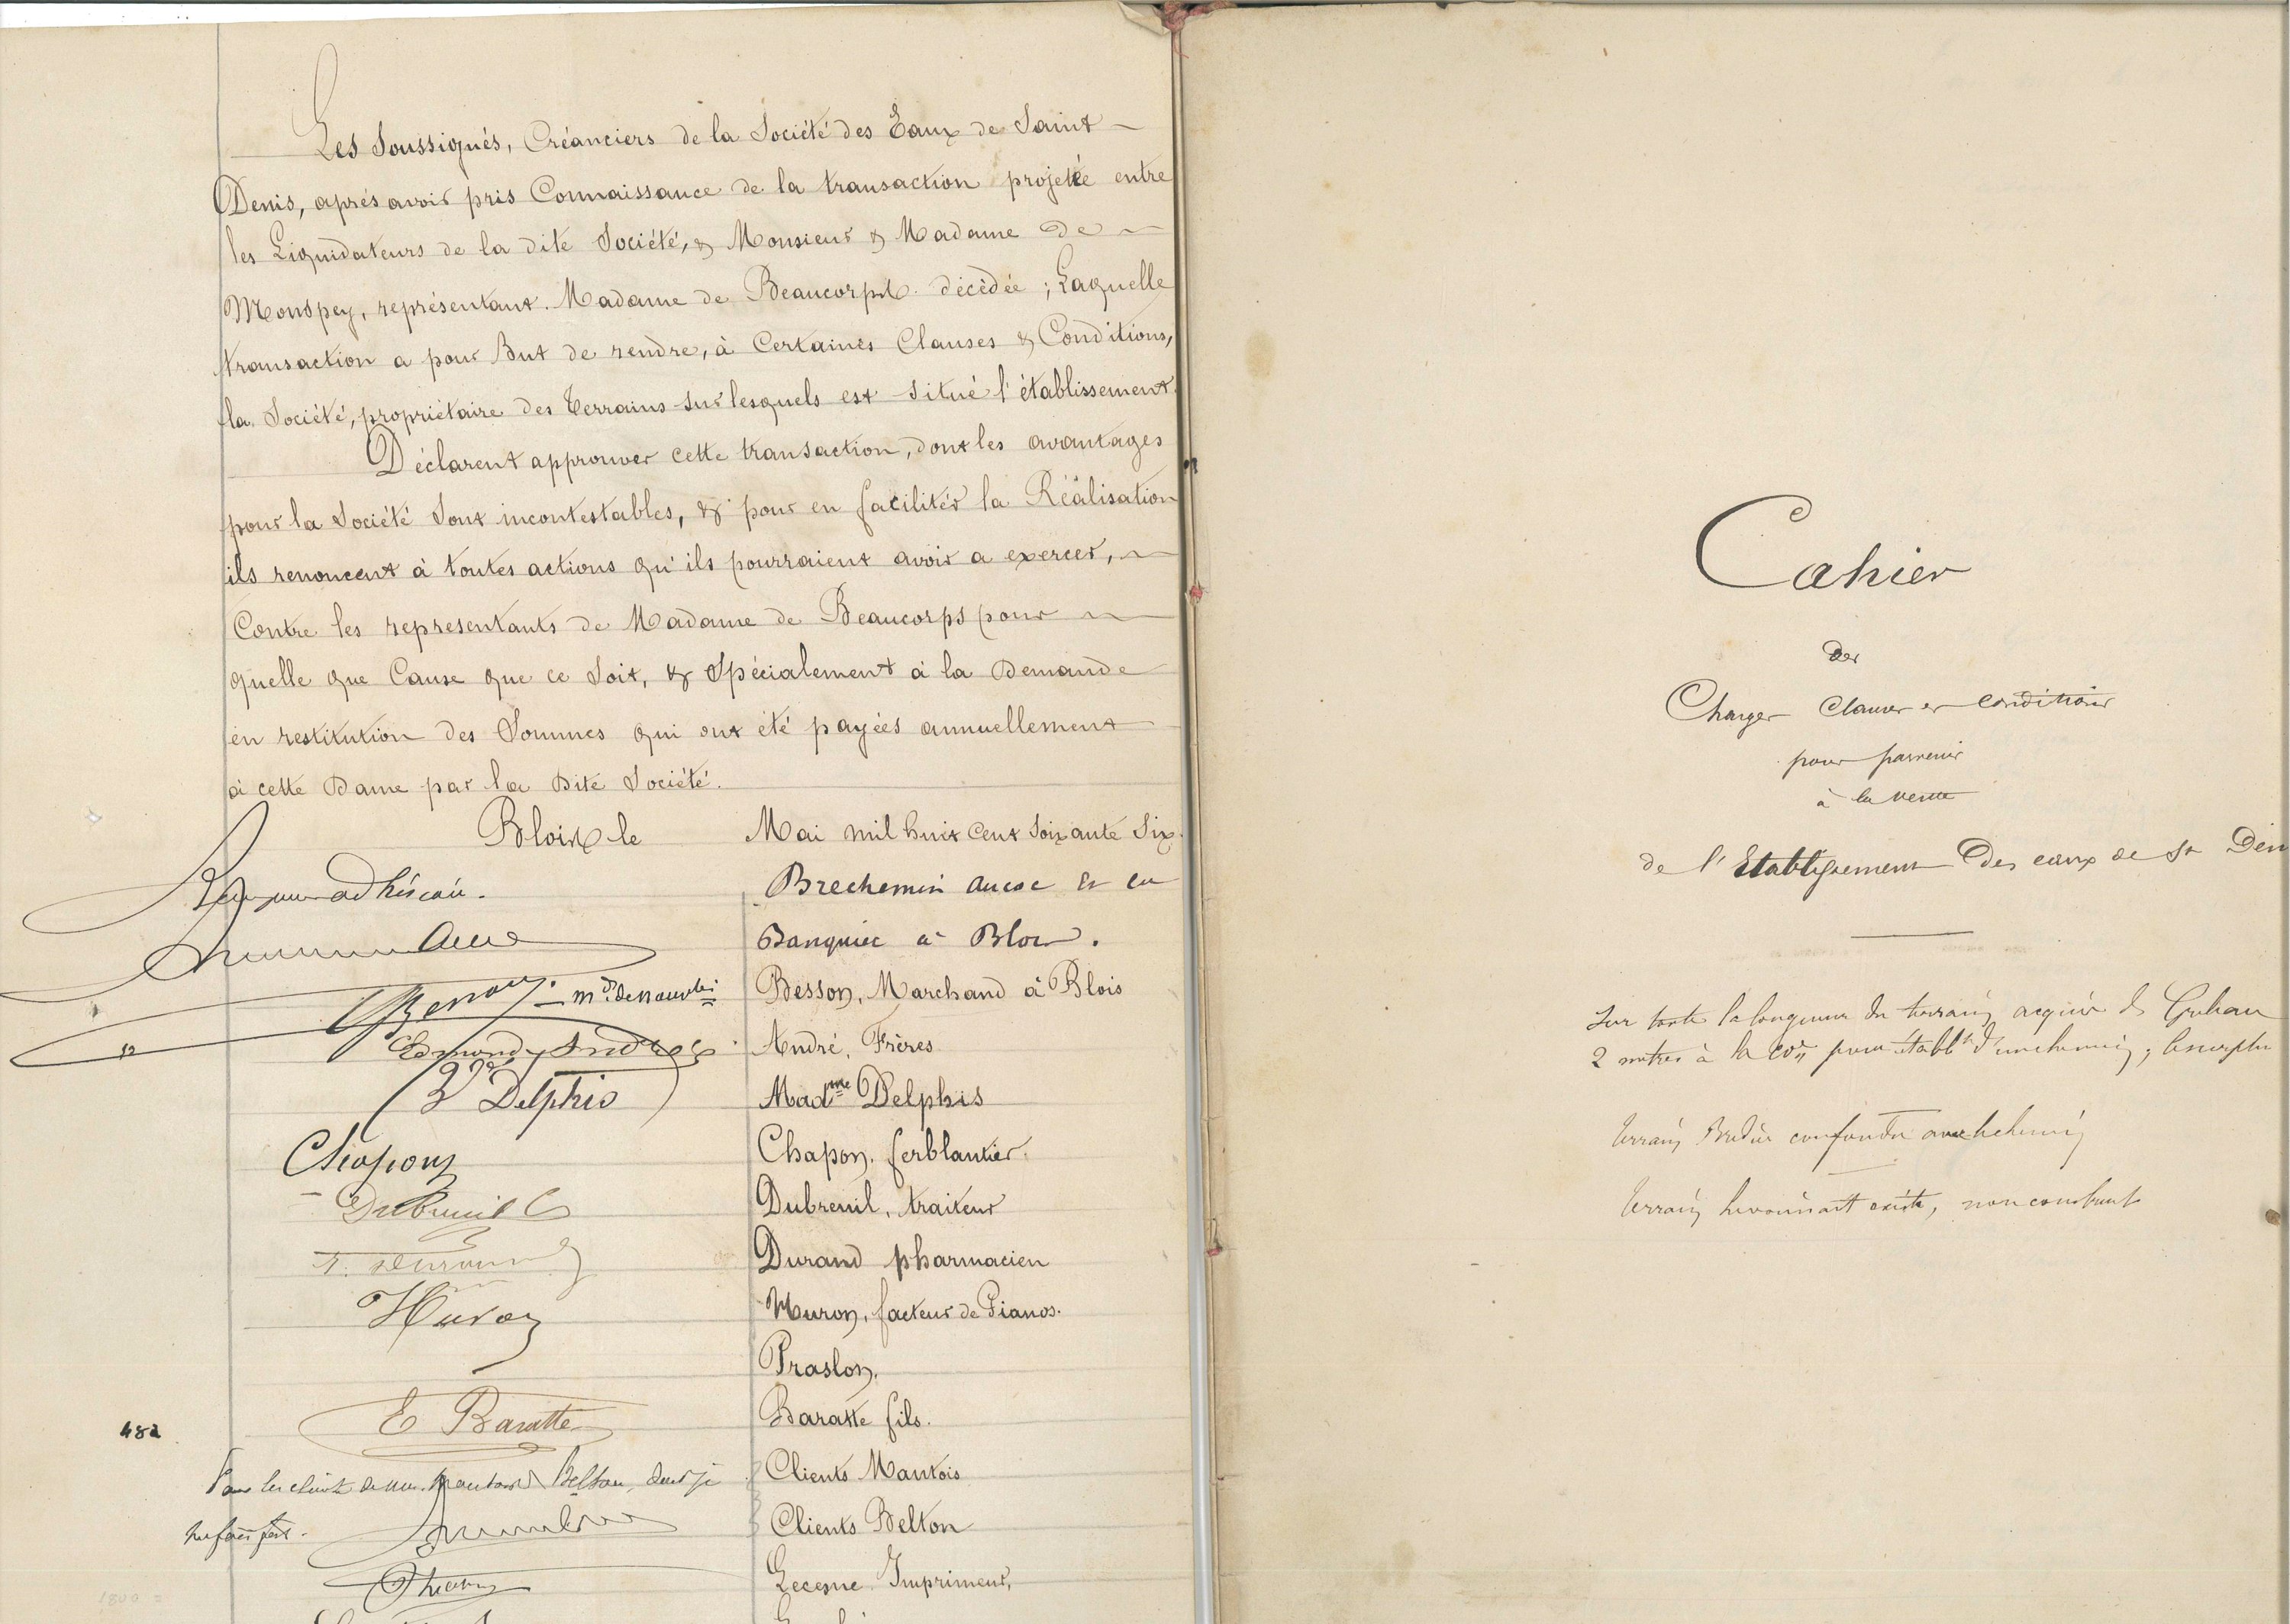 Les Soussignés, Créanciers de la Société des Eaux de Saint
Denis, après avoir pris Connaissance de la transaction projetée entre
les Liquidateurs de la dite Société, & Monsieur & Madame de
Monspey, représentant Madame de Beaucorps décèdée ; Laquelle
transaction a pour But de rendre, à Certaines Clauses & Conditions,
la Société, propriétaire des Terrains sur lesquels est situé l'établissement.
Déclarent approuver cette transaction, dont les avantages
pour la Société sont incontestables, & pour en faciliter la Réalisation
ils renoncent à toutes actions qu'ils pourraient avoir a exercer,
Contre les représentants de Madame de Beaucorps pour
quelle que Cause que ce Soit, & Spécialement à la Demande
en restitution des Sommes qui ont été payées annuellement
à cette Dame par la Dite Société.
Blois le Mai mil huit Cent Soixante Six.
Brechemin Aucoc et cie
Banquier à Blois.
Besson, Marchand à Blois
Edmond André
André, Frères
Delphis
Mad.me Delphis
Chapon
Chapon, ferblantier.
Dubreuil
Dubreuil, traiteur
Durand
Durand pharmacien
Huron
Huron, facteur de Pianos.
Praslon,
E Baratte
Baratte fils.
482
Pour les clients de Belton, dont je
Clients Mantois
me fais fort.
Clients Belton
Lecesne Imprimeur,
Cahier
des
Charges Clauses et conditions
pour parvenir
à la vente
de l'Etablissement des eaux de St Den
Sur toute la longueur du terrain acquis de
2 mètres à la pour établt d'un chemin,
terrain confondu avec le chemin
terrain existe,